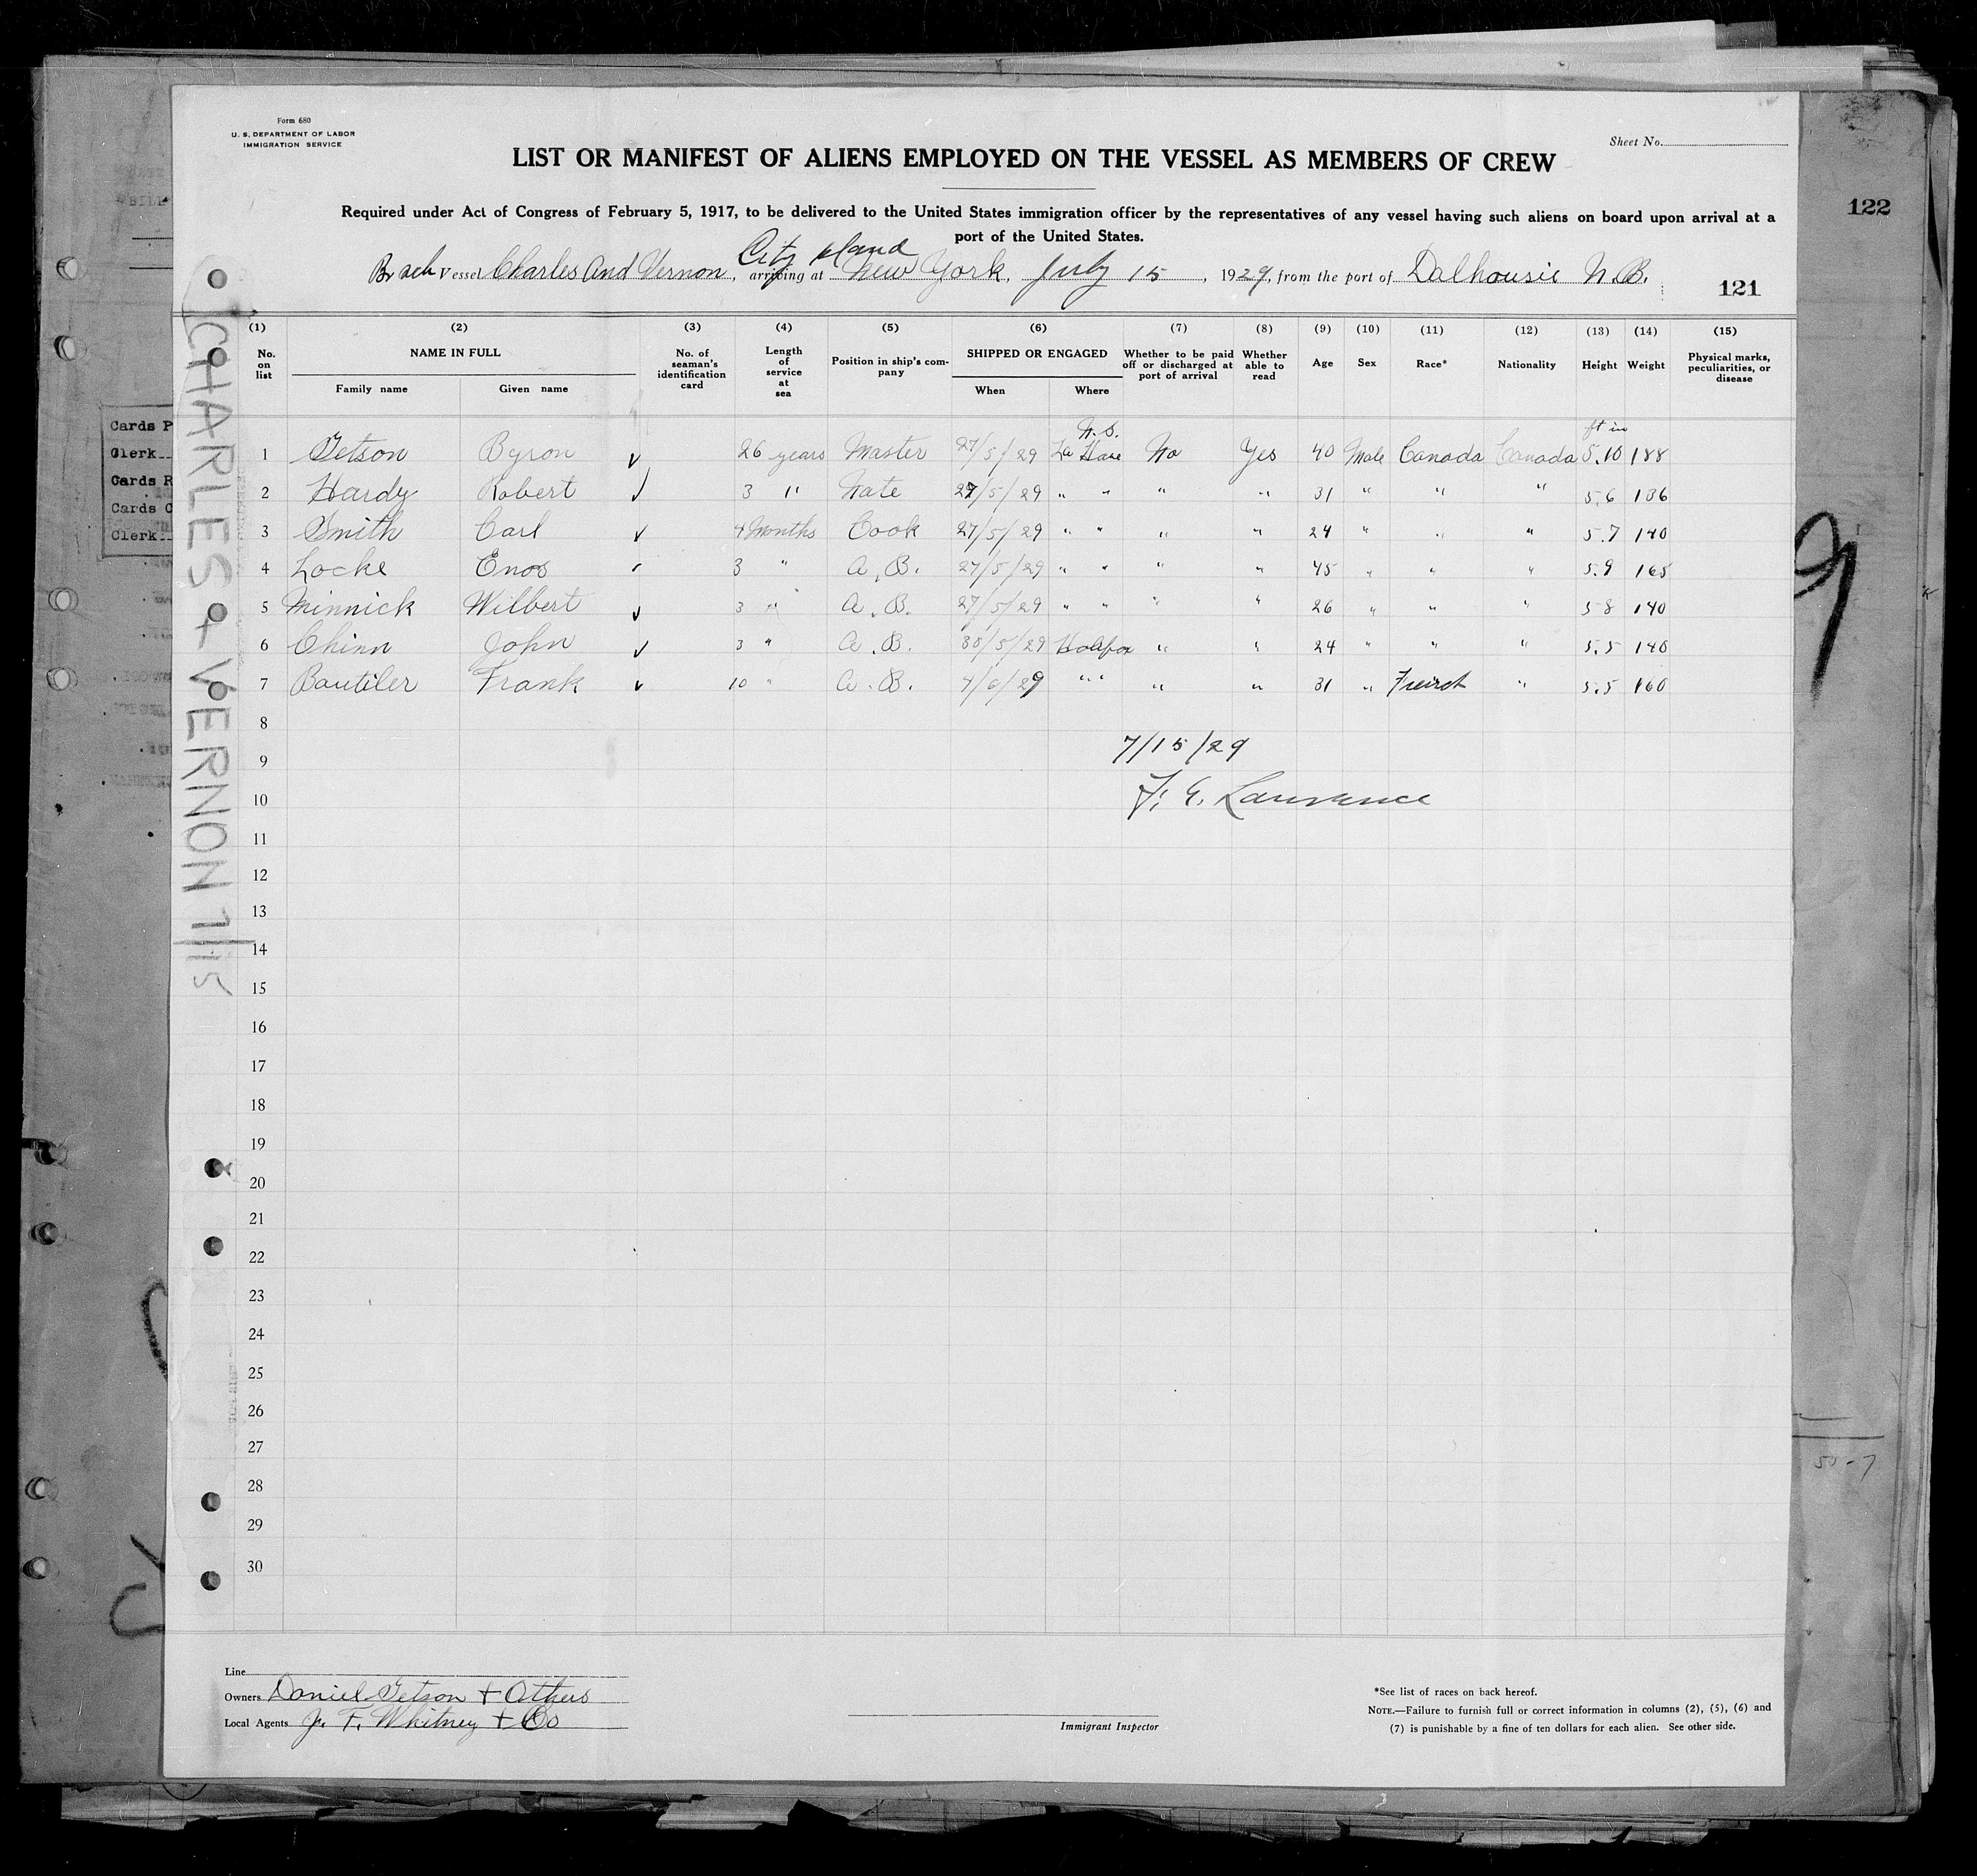 Form 680
U. S. DEPARTMENT OF LABOR
IMMIGRATION SERVICE
Sheet No.
LIST OR MANIFEST OF ALIENS EMPLOYED ON THE VESSEL AS MEMBERS OF CREW
Required under Act of Congress of February 5, 1917, to be delivered to the United States immigration officer by the representatives of any vessel having such aliens on board upon arrival at a
port of the United States.
122
City Island
Br sch Vessel Charles And Vernon, arriving at New York, July 15, 1929, from the port of Dalhousie N.B.
121
(1) (2) (3) (4) (5) (6) (7) (8) (9) (10) (11) (12) (13) (14) (15)
No. on list NAME IN FULL Family name Given name No. of seaman's identification card Length of service at sea Position in ship's company SHIPPED OR ENGAGED When Where Whether to be paid off or discharged at port of arrival Whether able to read Age Sex Race* Nationality Height Weight Physical marks, peculiarities, or disease
N.S. ft in
1 Getson Byron 26 years Master 27/5/29 La Have No Yes 40 Male Canada Canada 5.10 188
2 Hardy Robert 3 " Mate 27/5/29 " " " " 31 " " " 5.6 136
3 Smith Carl 4 Months Cook 27/5/29 " " " " 24 " " " 5.7 140
4 Locke Enos 3 " A.B. 27/5/29 " " " " 45 " " " 5.9 165
5 Minnick Wilbert 3 " A.B. 27/5/29 " " " " 26 " " " 5 8 140
6 Chinn John 3 " A.B. 30/5/29 Halifax " " 24 " " " 5.5 140
7 Boutilier Frank 10 " A.B. 4/6/29 " " " " 31 " French " 5.5 160
8
9
7/15/29
10
F. E. Lawrence
11
12
13
14
15
16
17
18
19
20
21
22
23
24
25
26
27
28
29
30
CHARLES & VERNON 7/15
Cards P
Clerk
Cards R
Cards C
Clerk
BILL
9
50-7
Line
Owners Daniel Getson + Others
Local Agents J. F. Whitney + Co
Immigrant Inspector
*See list of races on back hereof.
NOTE.—Failure to furnish full or correct information in columns (2), (5), (6) and
(7) is punishable by a fine of ten dollars for each alien. See other side.